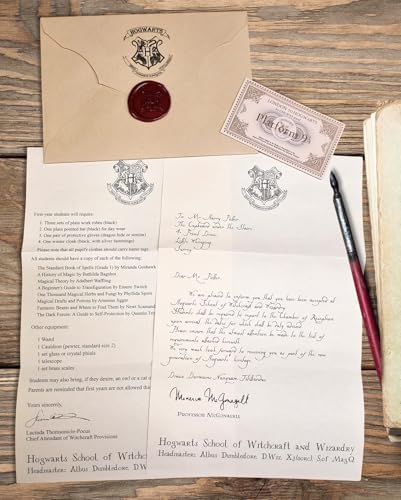 HOGWARTS
LONDON TO HOGWARTS
Platform 9¾
First-year students will require:
1. Three sets of plain work robes (black)
2. One plain pointed hat (black) for day wear
3. One pair of protective gloves (dragon hide or similar)
4. One winter cloak (black, with silver fastenings)
Please note that all pupil's clothes should carry name tags.
All students should have a copy of each of the following:
The Standard Book of Spells (Grade 1) by Miranda Goshawk
A History of Magic by Bathilda Bagshot
Magical Theory by Adalbert Waffling
A Beginner's Guide to Transfiguration by Emeric Switch
One Thousand Magical Herbs and Fungi by Phyllida Spore
Magical Drafts and Potions by Arsenius Jigger
Fantastic Beasts and Where to Find Them by Newt Scamander
The Dark Forces: A Guide to Self-Protection by Quentin
Other equipment:
1 Wand
1 Cauldron (pewter, standard size 2)
1 set glass or crystal phials
1 telescope
1 set brass scales
Students may also bring, if they desire, an owl or a cat
Parents are reminded that first years are not allowed
Yours sincerely,
Lucinda Thomsonicle-Pocus
Chief Attendant of Witchcraft Provisions
Hogwarts School of Witch
Headmaster: Albus Dumbledore, D.W
To Mr. Harry Potter
The Cupboard under the Stairs
4 Privet Drive
Little Whinging
Surrey
Dear Mr. Potter
We are pleased to inform you that you have been accepted at
Hogwarts School of Witchcraft and Wizardry
Students shall be required to report to the Chamber of Reception
upon arrival, the dates for which shall be duly advised
Please ensure that the utmost attention be made to the list of
requirements attached herewith
We very much look forward to receiving you as part of the new
generation of Hogwarts' heritage
Draco Dormiens Nunquam Titillandus
Minerva McGonagall
Professor McGonagall
Hogwarts School of Witchcraft and Wizardry
Headmaster: Albus Dumbledore, D.Wiz, X.J.(sorc), S.of Mag.Q